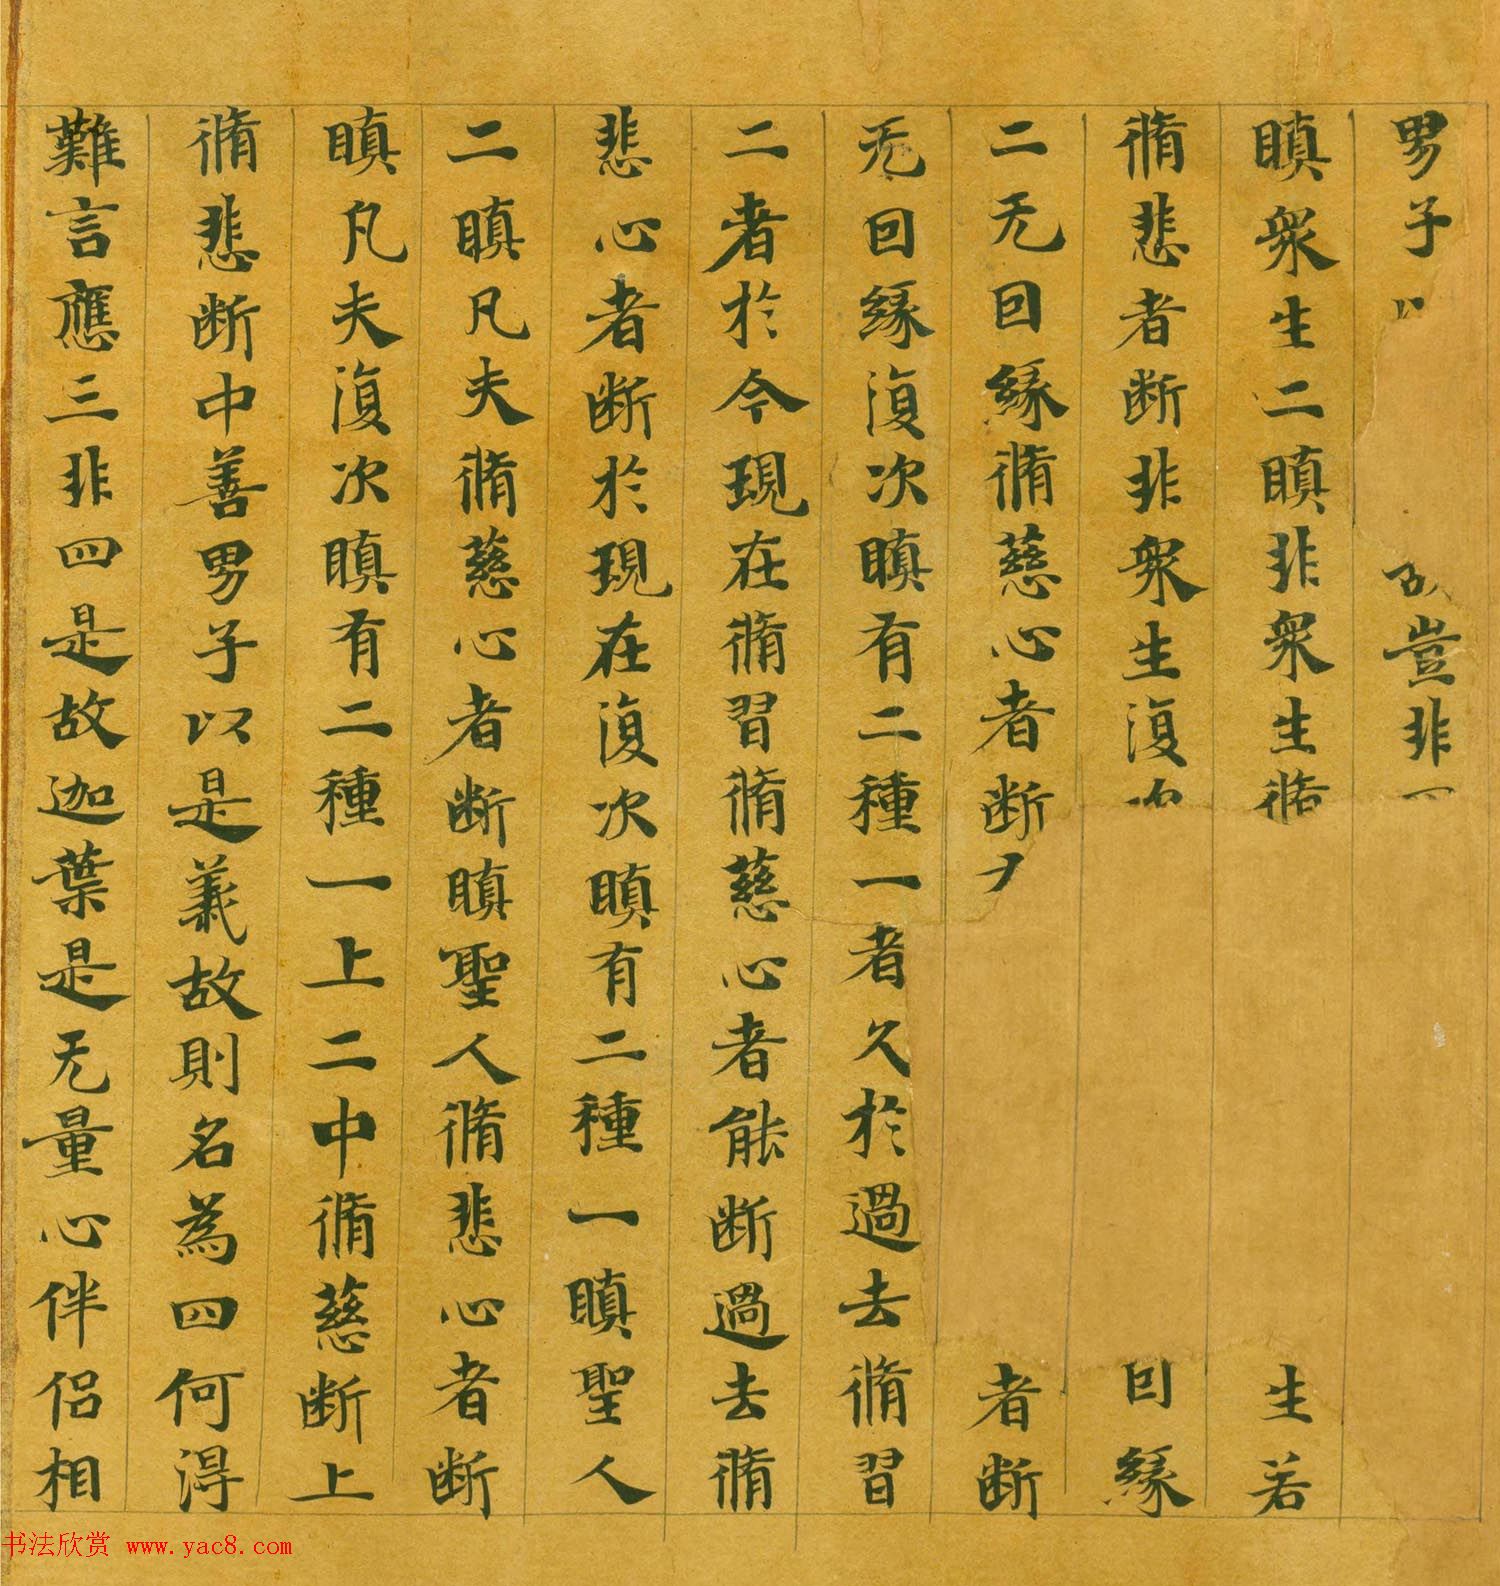 男子豈非
瞋衆生二瞋非衆生脩生若
脩悲者断非衆生復囙緣
二无囙緣脩慈心者断者断
无囙緣復次瞋有二種一者久於過去脩習
二者於今現在脩習脩慈心者能断過去脩
悲心者断於現在復次瞋有二種一瞋聖人
二瞋凡夫脩慈心者断瞋聖人脩悲心者断
瞋凡夫復次瞋有二種一上二中脩慈断上
脩悲断中善男子以是義故則名為四何得
難言應三非四是故迦葉是无量心伴侶相
书法欣赏 www.yac8.com